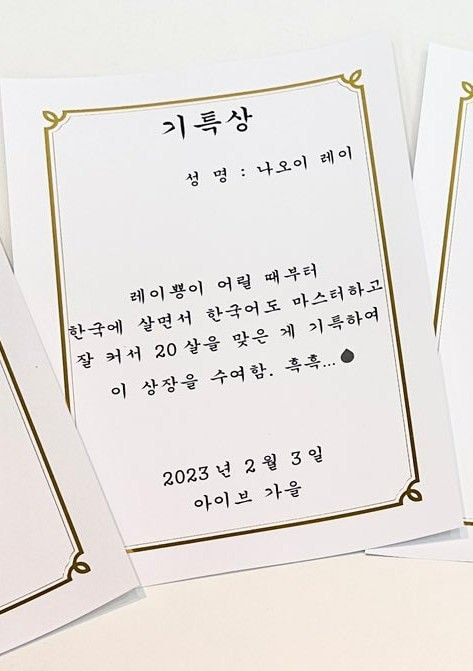 기특상
성 명 : 나오이 레이
레이쁑이 어릴 때부터
한국에 살면서 한국어도 마스터하고
잘 커서 20살을 맞은 게 기특하여
이 상장을 수여함. 흑흑...
2023년 2월 3일
아이브 가을